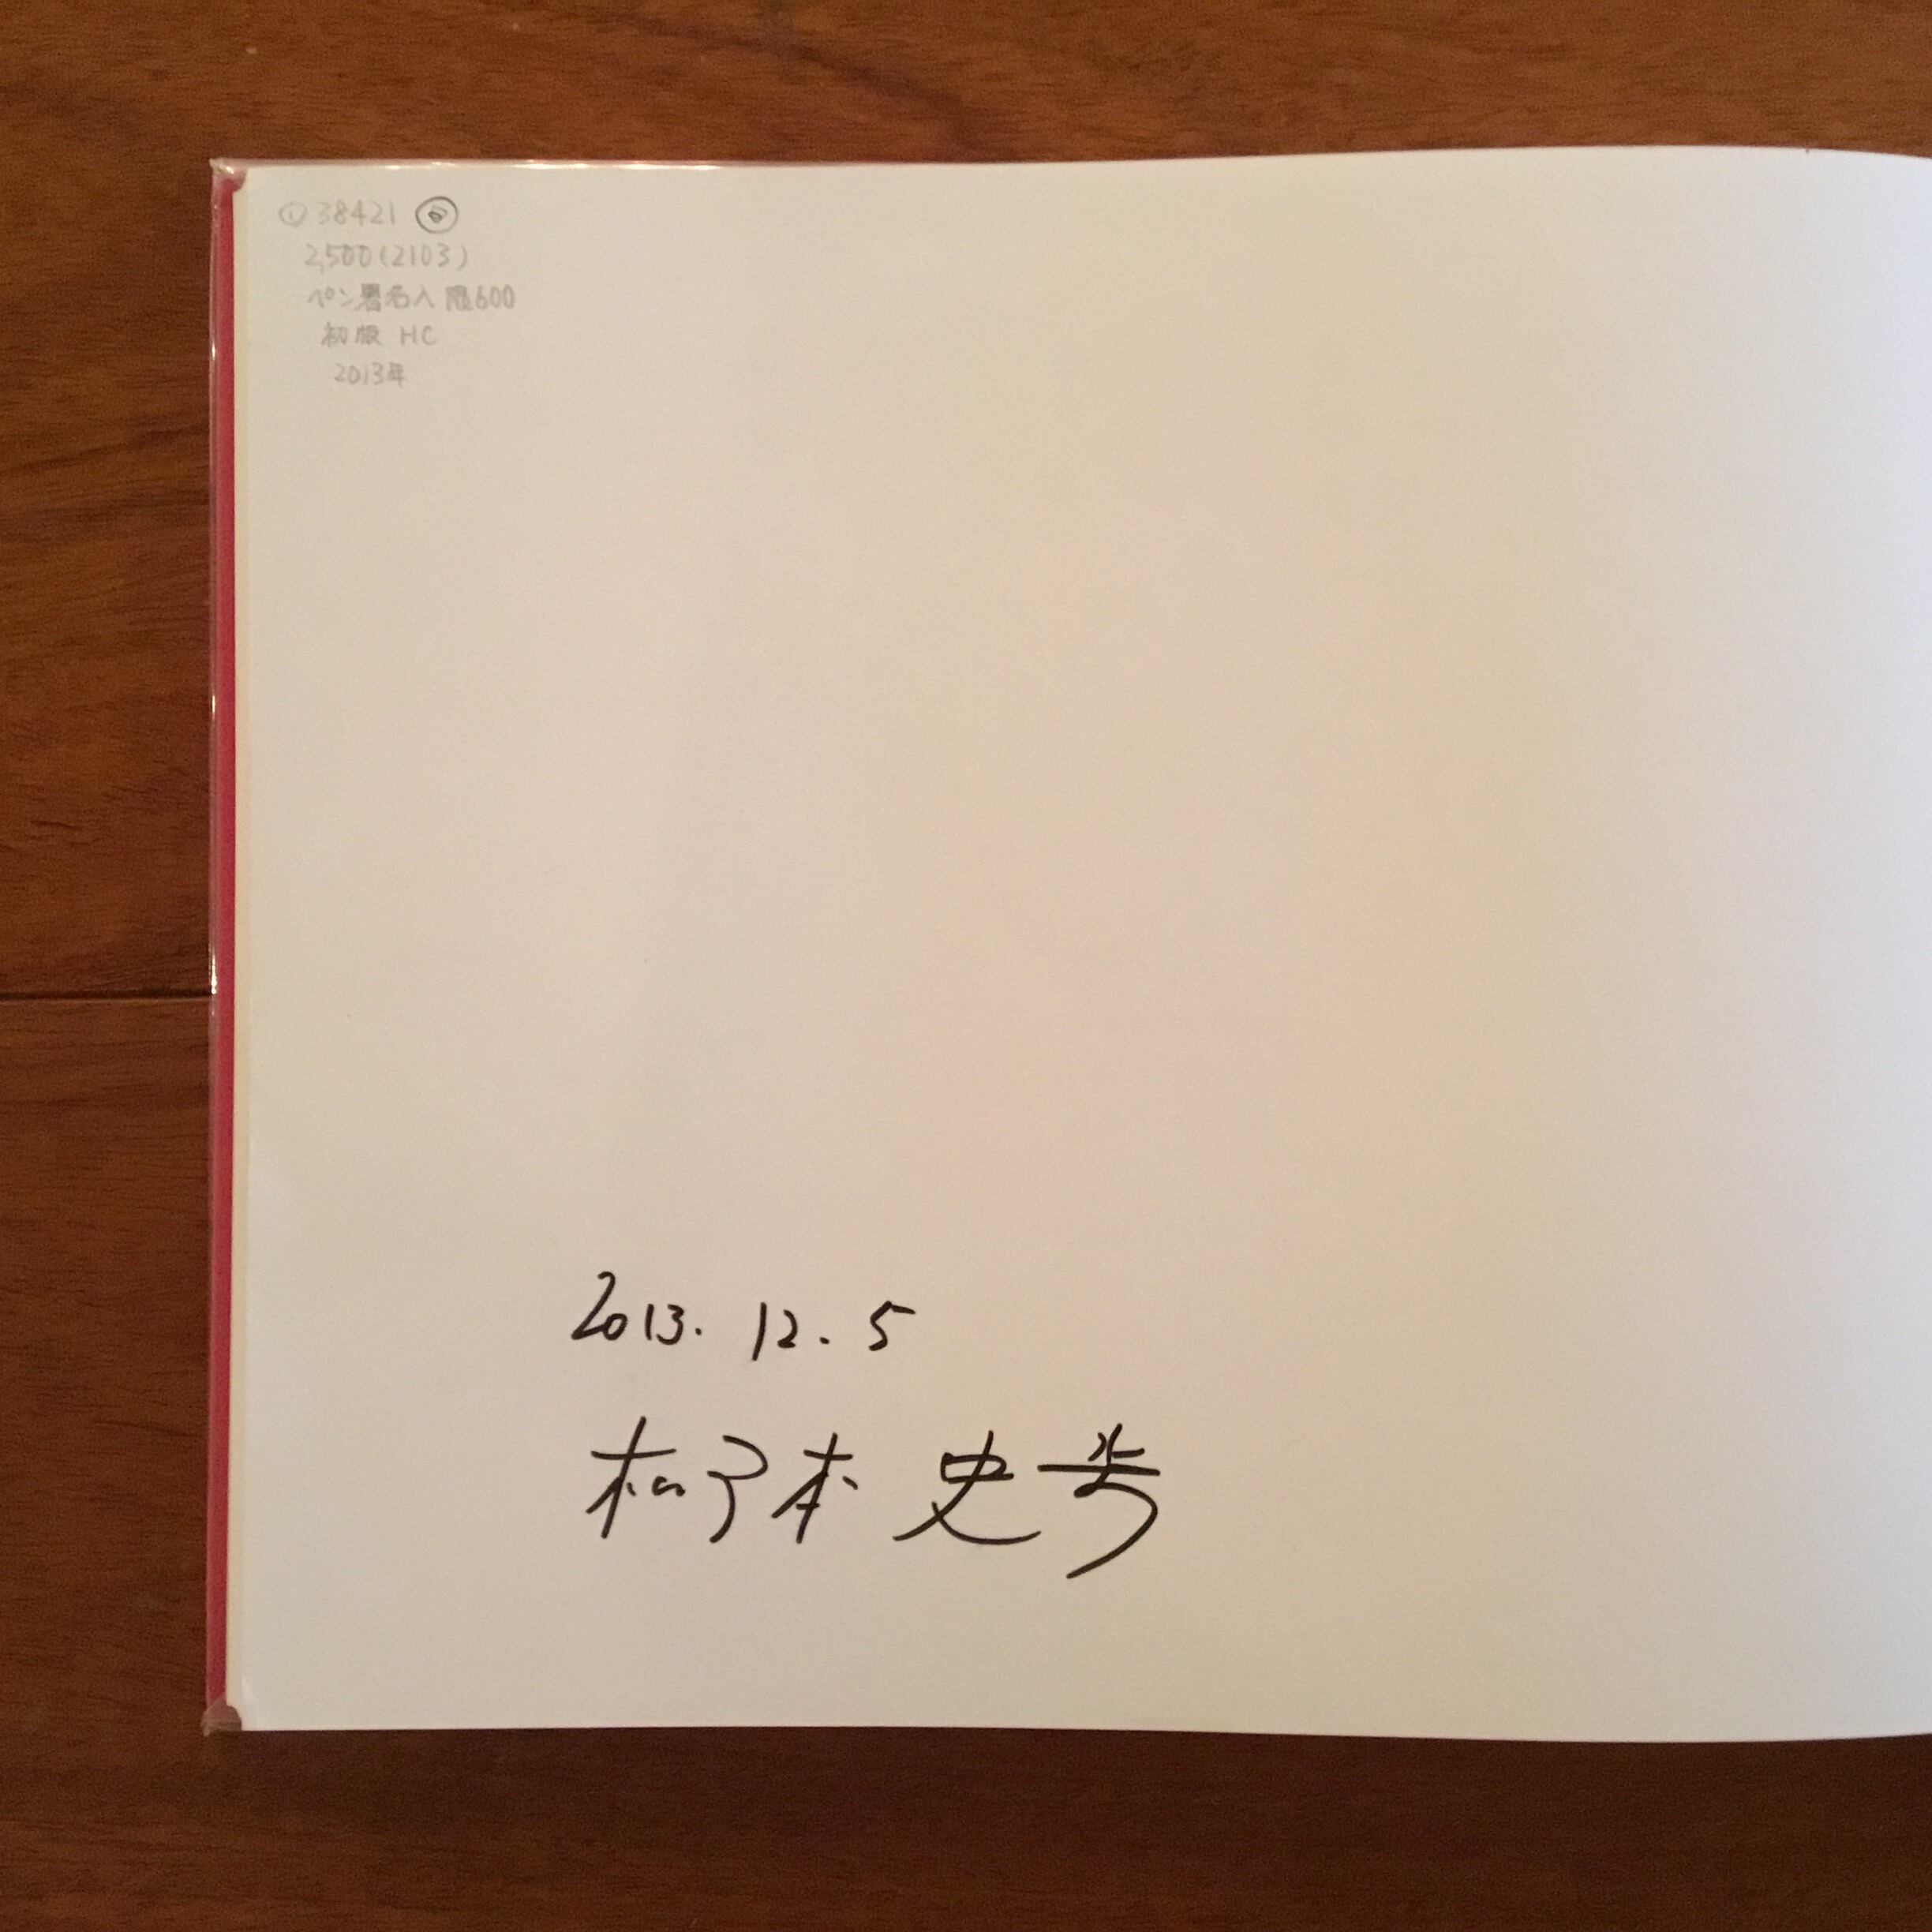 ① 38421
2,500(2103)
ペン署名入 限600
初版 HC
2013年
2013. 12. 5
本 史歩